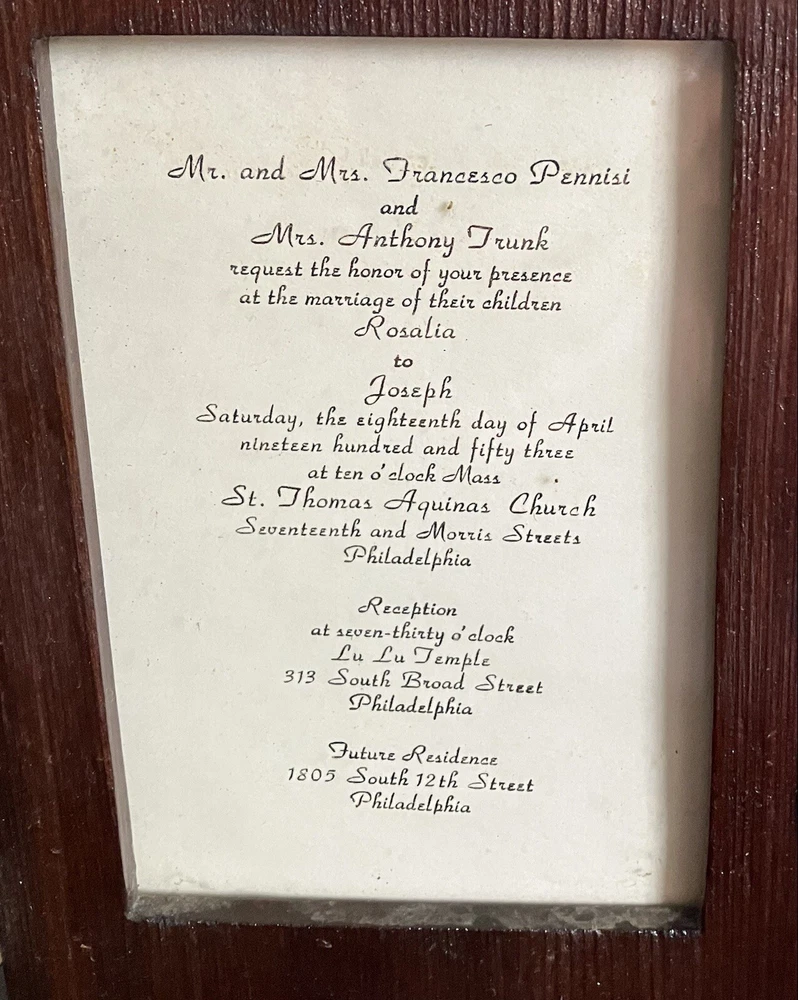 Mr. and Mrs. Francesco Pennisi
and
Mrs. Anthony Trunk
request the honor of your presence
at the marriage of their children
Rosalia
to
Joseph
Saturday, the eighteenth day of April
nineteen hundred and fifty three
at ten o'clock Mass
St. Thomas Aquinas Church
Seventeenth and Morris Streets
Philadelphia
Reception
at seven-thirty o'clock
Lu Lu Temple
313 South Broad Street
Philadelphia
Future Residence
1805 South 12th Street
Philadelphia